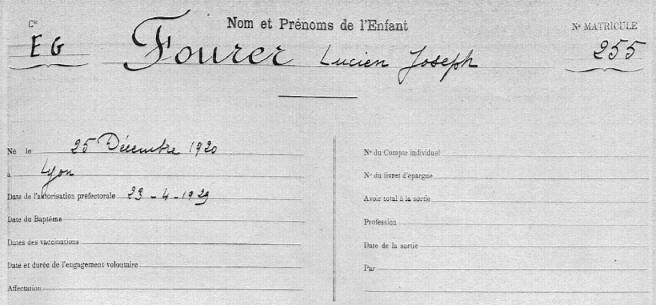 Cie Nom et Prénoms de l'Enfant No MATRICULE
EG Fourer Lucien Joseph 255
Né le 25 Décembre 1920
à Lyon
Date de l'autorisation préfectorale 23-4-1929
Date du Baptême
Dates des vaccinations
Date et durée de l'engagement volontaire
Affectation
No du Compte individuel
No du livret d'épargne
Avoir total à la sortie
Profession
Date de la sortie
Par